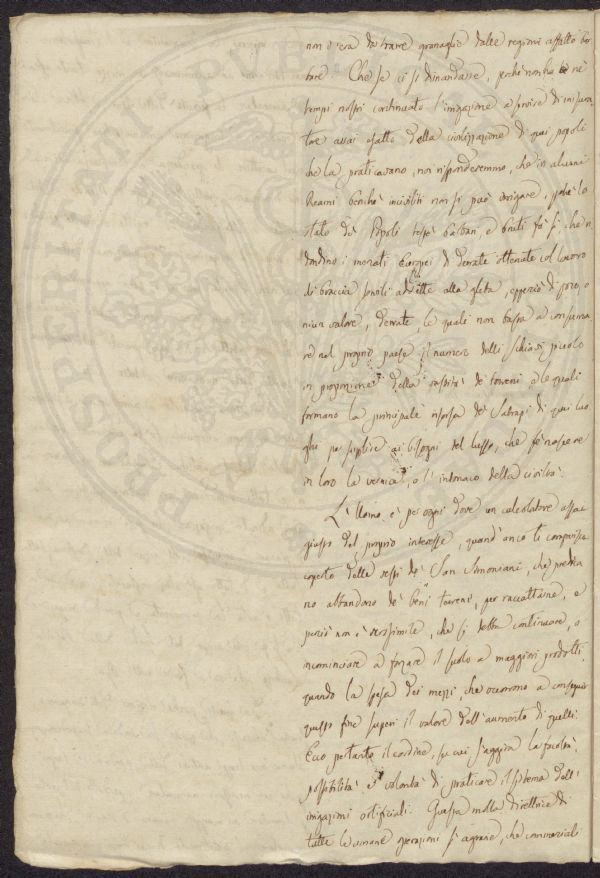 non v'era da trarre granaglie dalle regioni affatto bar
bare. Che se ci si dimandasse, perchè non ha ne'
tempi nostri continuato l'irrigazione a servire di misura
tore assai esatto della civilizzazione di quei popoli
che la praticavano, noi risponderemmo, che in alcuni
Reami benchè inciviliti non si può irrigare, poichè lo
stato de' Popoli tessè barbari, e bruti fa sì, che i
ondino i mercati Europei di derrate ottenute col lavoro
di braccia servili addette alla gleba, epperciò di poco, o
niun valore, derrate le quali non basta a consuma
re nel proprio paese il numero delli Schiavi piccolo
in proporzione della vastità de' terreni, e le quali
formano la principale risorsa de' Satrapi di quei luo
ghi per supplire ai bisogni del lusso, che fè nascere
in loro la vernice, o l'intonaco della civiltà.
L'Uomo è per ogni dove un calcolatore assai
giusto del proprio interesse, quand'anco ti comparisse
coperto delle vesti de' San Simoniani, che predica
no abbandono de' beni terreni, per raccattarne, e
perciò non è verosimile, che si debba continuare, o
incominciare a forzare il suolo a maggiori prodotti,
quando la spesa dei mezzi, che occorrono a conseguir
questo fine superi il valore dell'aumento di quelli.
Ecco pertanto il cardine, su cui s'aggira la facoltà,
possibilità e volontà di praticare il sistema dell'
irrigazioni artificiali. Questa molla direttrice di
tutte le umane operazioni si agrandì, che commerciali